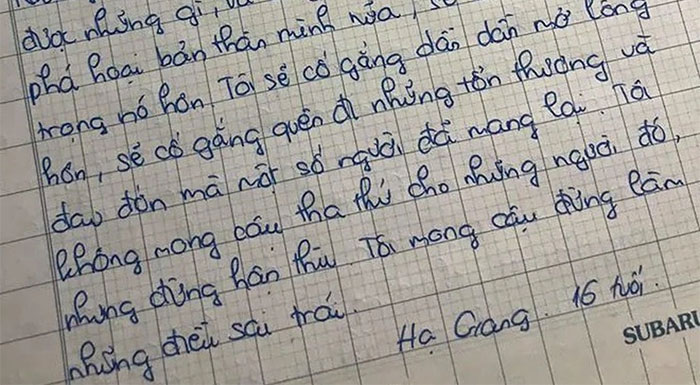 được những gì, và
phá hoại bản thân mình nữa,
trọng nó hơn. Tôi sẽ cố gắng dần dần mở lòng
hơn, sẽ cố gắng quên đi những tổn thương và
đau đớn mà một số người đã mang lại. Tôi
không mong cậu tha thứ cho những người đó,
nhưng đừng hận thù. Tôi mong cậu đừng làm
những điều sai trái.
Hạ Giang. 16 tuổi.
SUBARU